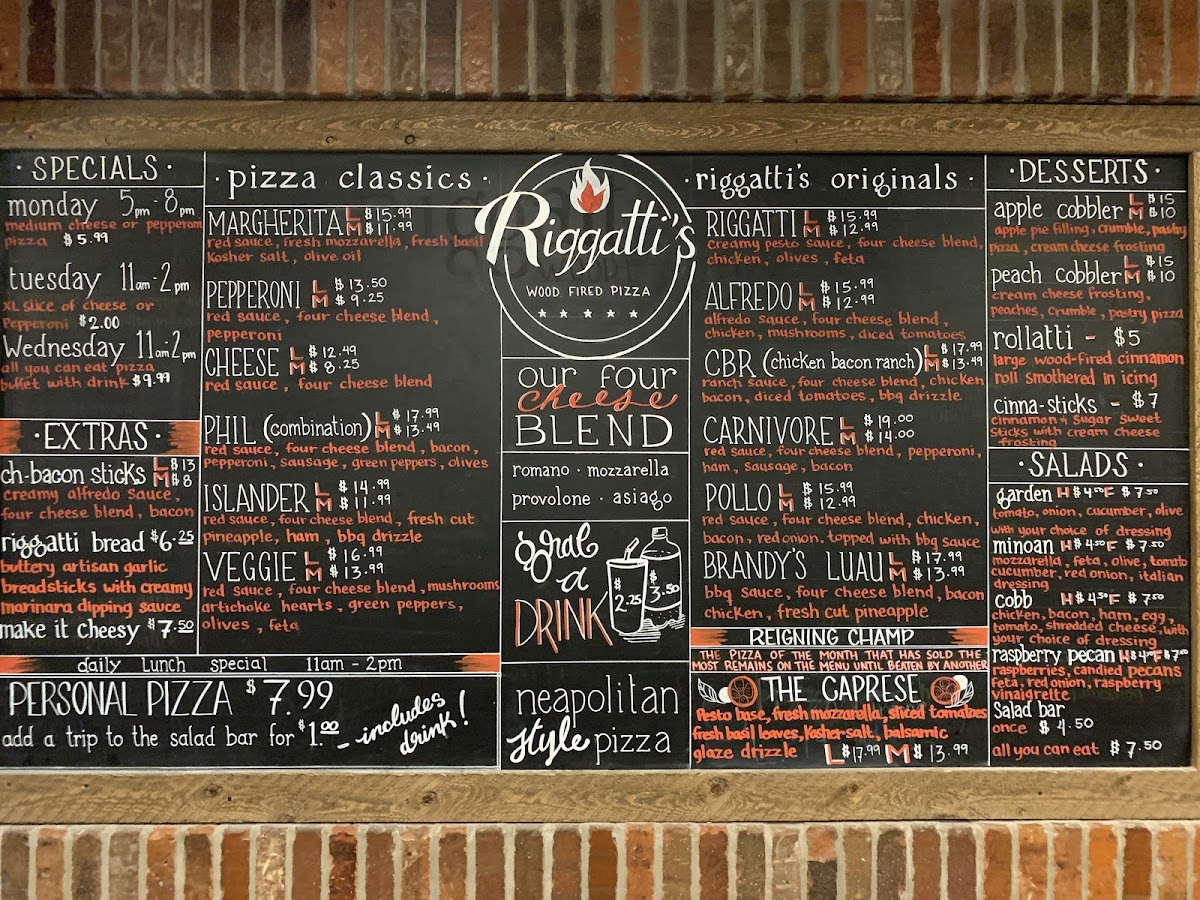 · SPECIALS ·
monday 5pm - 8pm
medium cheese or pepperoni
pizza $5.99
tuesday 11am - 2pm
XL slice of cheese or
Pepperoni $2.00
Wednesday 11am-2pm
all you can eat pizza
buffet with drink $9.99
· EXTRAS ·
ch-bacon sticks L $13
M $8
creamy alfredo sauce,
four cheese blend, bacon
riggatti bread $6.25
buttery artisan garlic
breadsticks with creamy
marinara dipping sauce
make it cheesy $7.50
· pizza classics ·
MARGHERITA L $15.99
M $11.99
red sauce, fresh mozzarella, fresh basil
Kosher salt, olive oil
PEPPERONI L $13.50
M $9.25
red sauce, four cheese blend,
pepperoni
CHEESE L $12.49
M $8.25
red sauce, four cheese blend
PHIL (combination) L $17.99
M $13.49
red sauce, four cheese blend, bacon,
pepperoni, sausage, green peppers, olives
ISLANDER L $14.99
M $11.99
red sauce, four cheese blend, fresh cut
pineapple, ham, bbq drizzle
VEGGIE L $16.99
M $13.99
red sauce, four cheese blend, mushrooms
artichoke hearts, green peppers,
olives, feta
daily lunch special 11am - 2pm
PERSONAL PIZZA $7.99
add a trip to the salad bar for $1.00
- includes
drink!
Riggatti's
WOOD FIRED PIZZA
our four
cheese
BLEND
romano · mozzarella
provolone · asiago
grab
a
DRINK
2.25
$3.50
neapolitan
style pizza
· riggatti's originals ·
RIGGATTI L $15.99
M $12.99
Creamy pesto sauce, four cheese blend,
chicken, olives, feta
ALFREDO L $15.99
M $12.99
alfredo sauce, four cheese blend,
chicken, mushrooms, diced tomatoes
CBR (chicken bacon ranch) L $17.99
M $13.49
ranch sauce, four cheese blend, chicken
bacon, diced tomatoes, bbq drizzle
CARNIVORE L $19.00
M $14.00
red sauce, four cheese blend, pepperoni,
ham, sausage, bacon
POLLO L $15.99
M $12.99
red sauce, four cheese blend, chicken,
bacon, red onion. topped with bbq sauce
BRANDY'S LUAU L $17.99
M $13.99
bbq sauce, four cheese blend, bacon
chicken, fresh cut pineapple
REIGNING CHAMP
THE PIZZA OF THE MONTH THAT HAS SOLD THE
MOST REMAINS ON THE MENU UNTIL BEATEN BY ANOTHER
THE CAPRESE
Pesto base, fresh mozzarella, sliced tomatoes
fresh basil leaves, kosher salt, balsamic
glaze drizzle L $17.99 M $13.99
· DESSERTS ·
apple cobbler L $15
M $10
apple pie filling, crumble, pastry
pizza, cream cheese frosting
peach cobbler L $15
M $10
cream cheese frosting,
peaches, crumble, pastry pizza
rollatti - $5
large wood-fired cinnamon
roll smothered in icing
cinna-sticks - $7
cinnamon & sugar sweet
sticks with cream cheese
frosting
· SALADS ·
garden H $4.50 F $7.50
tomato, onion, cucumber, olive
with your choice of dressing
minoan H $4.50 F $7.50
mozzarella, feta, olive, tomato
cucumber, red onion, italian
dressing
cobb H $4.50 F $7.50
chicken, bacon, ham, egg,
tomato, shredded cheese, with
your choice of dressing
raspberry pecan H $4.50 F $7.00
raspberries, candied pecans
feta, red onion, raspberry
vinaigrette
Salad bar
once $4.50
all you can eat $7.50